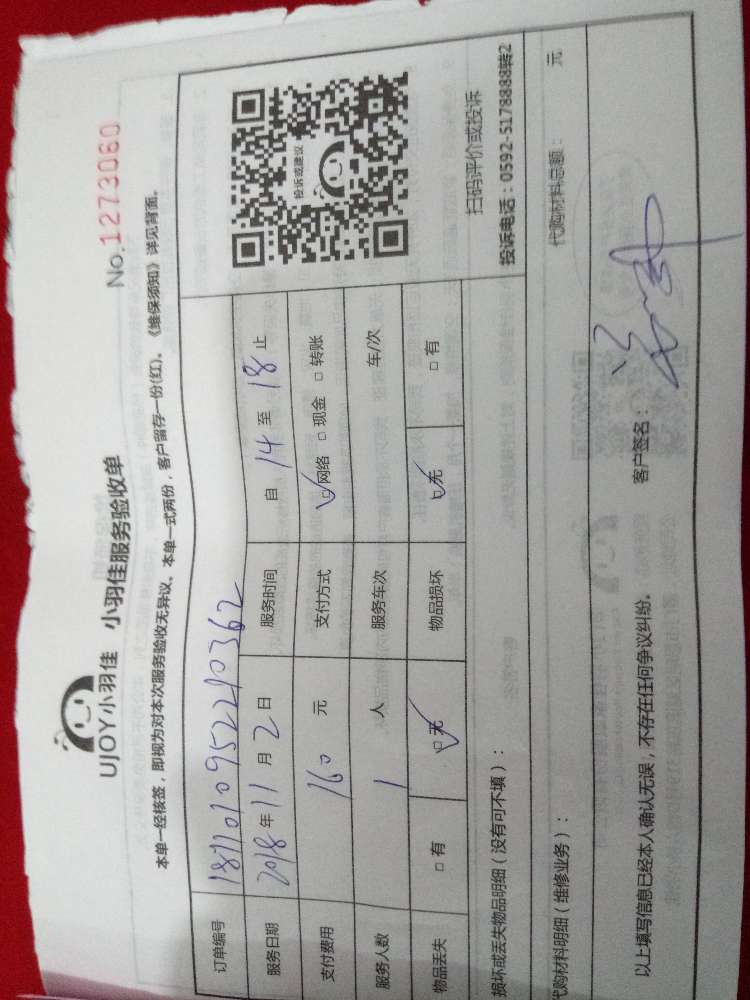 UJOY小羽佳 小羽佳服务验收单
No.1273060
本单一经核签，即视为对本次服务验收无异议、本单一式两份，客户留存一份(红)、《维保须知》详见背面。
订单编号
服务日期 2018年 11 月 2 日 服务时间 自 14 至 18 止
支付费用 160 元 支付方式 ☑网络 □现金 □转账
服务人数 1 人 服务车次 车/次
物品丢失 □有 ☑无 物品损坏 ☑无 □有
投诉或建议
扫码评价或投诉
投诉电话：0592-5178888转2
损坏或丢失物品明细（没有可不填）：
代购材料明细（维修业务）： 代购材料总额： 元
以上填写信息已经本人确认无误，不存在任何争议纠纷。 客户签名：